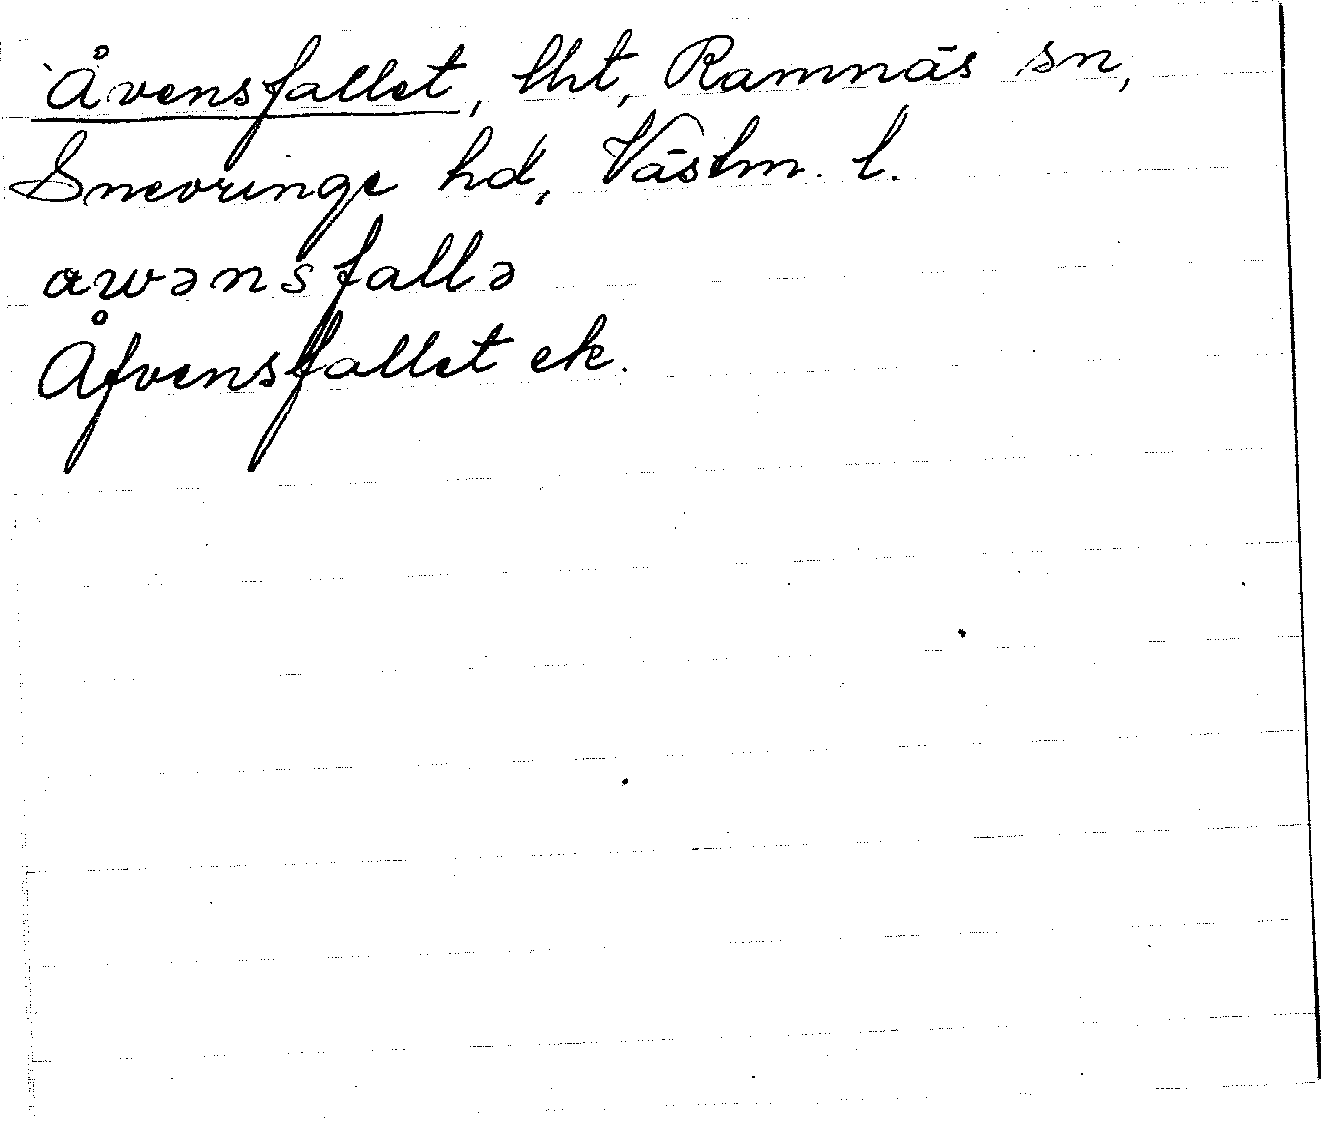 Åvensfallet, lht, Ramnäs sn,
Snevringe hd, Västm. l.
awənsfallə
Åfvensfallet ek.